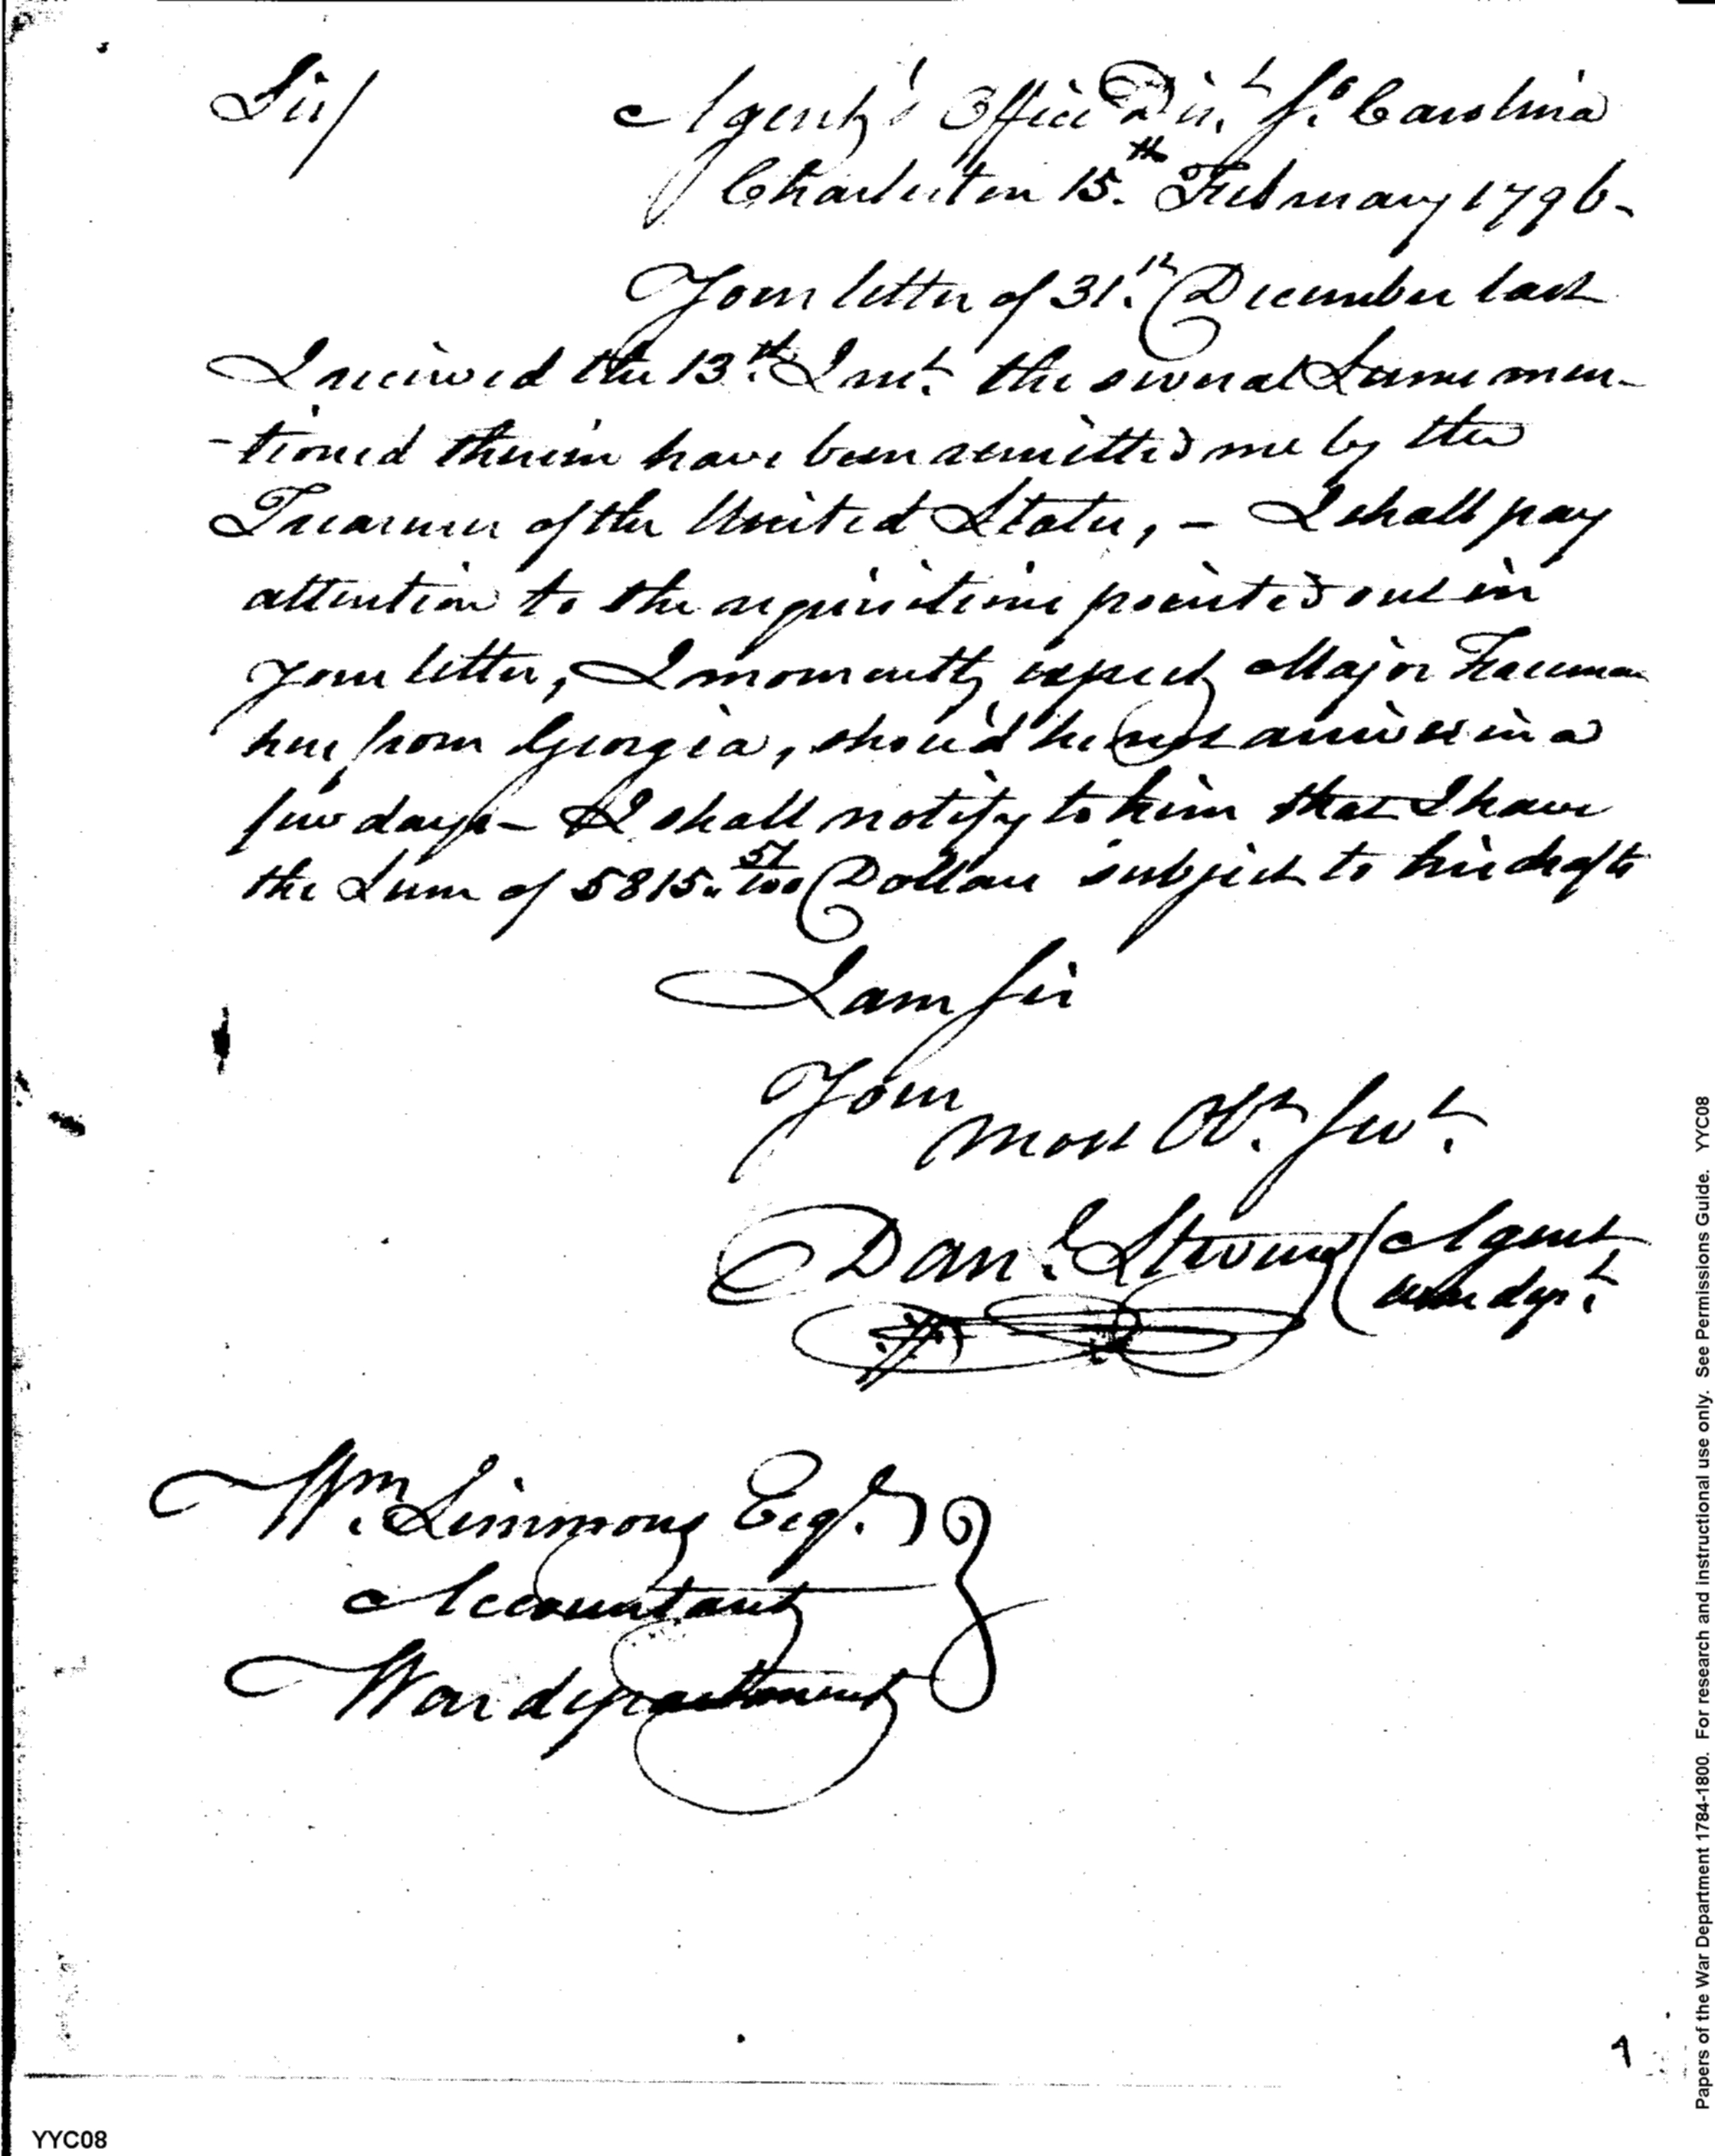 Sir/ Agent's Office Dist. So. Carolina
Charleston 15.th February 1796-
Your letter of 31.st December last
I received the 13.th Inst. the several Sums men-
-tioned therein have been remitted me by the
Treasurer of the United States, - I shall pay
attention to the requisitions pointed out in
your letter, I momently expect Major Freeman
here from Georgia, shou'd he not arrive in a
few days - I shall notify to him that I have
the Sum of 5815. 51/100 Dollars subject to his drafts
I am Sir
Your
most Ob.t Serv.t
Dan.l Stevens (Agent
war dep.t
Wm. Simmons Esq.r
Accountant
War department
Papers of the War Department 1784-1800. For research and instructional use only. See Permissions Guide. YYC08
YYC08